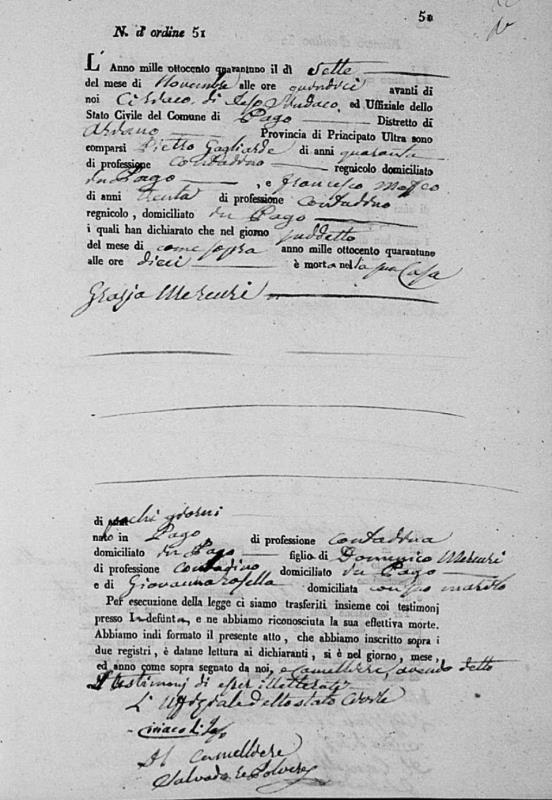 51
N. d'ordine 51
L'Anno mille ottocento quarantuno il dì sette
del mese di Novembre alle ore quindici avanti di
noi Ciriaco di Leso Sindaco ed Uffiziale dello
Stato Civile del Comune di Pago Distretto di
Ariano Provincia di Principato Ultra sono
comparsi Pietro Gagliarde di anni quaranta
di professione Contadino regnicolo domiciliato
in Pago , e Francesco Maffeo
di anni trenta di professione Contadino
regnicolo , domiciliato in Pago
i quali han dichiarato che nel giorno suddetto
del mese di come sopra anno mille ottocento quarantuno
alle ore dieci è morta nella sua Casa
Grazia Mercuri
di pochi giorni
nato in Pago di professione Contadina
domiciliato in Pago figlio di Domenico Mercuri
di professione Contadino domiciliato in Pago
e di Giovanna domiciliata con suo marito
Per esecuzione della legge ci siamo trasferiti insieme coi testimonj
presso la defunta, e ne abbiamo riconosciuta la sua effettiva morte.
Abbiamo indi formato il presente atto , che abbiamo inscritto sopra i
due registri , è datane lettura ai dichiaranti , si è nel giorno , mese ,
ed anno come sopra segnato da noi, e Cancelliere, avendo detto
i testimonj di esser illetterati
L'Uffiziale dello stato Civile
Ciriaco di Leso
Il Cancelliere
Salvadore Polvere